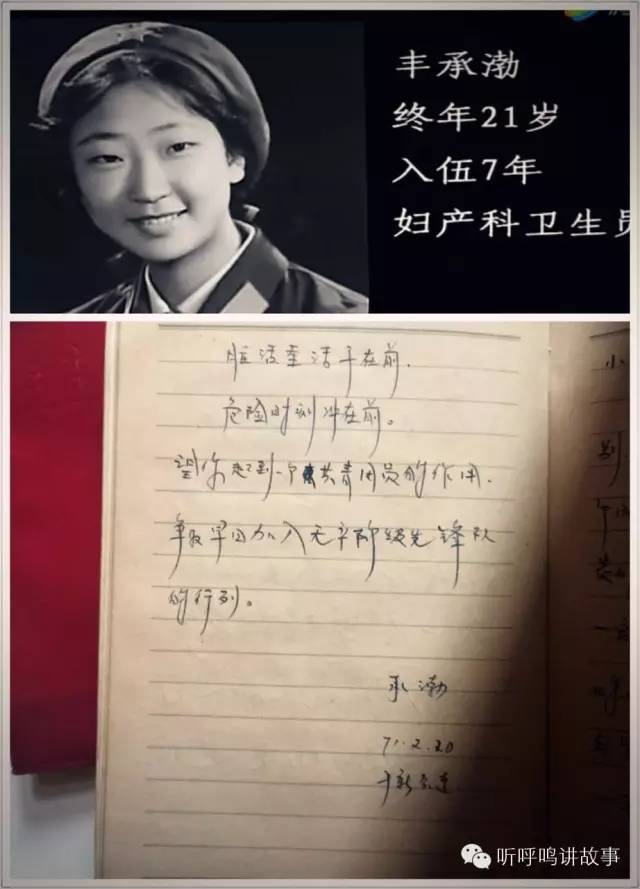 丰承渤
终年21岁
入伍7年
妇产科卫生员
脏活重活干在前.
危险时刻冲在前。
望你起到一个共青团员的作用.
争取早日加入无产阶级先锋队
的行列。
承渤
71.2.20
小
别
一
听呼鸣讲故事